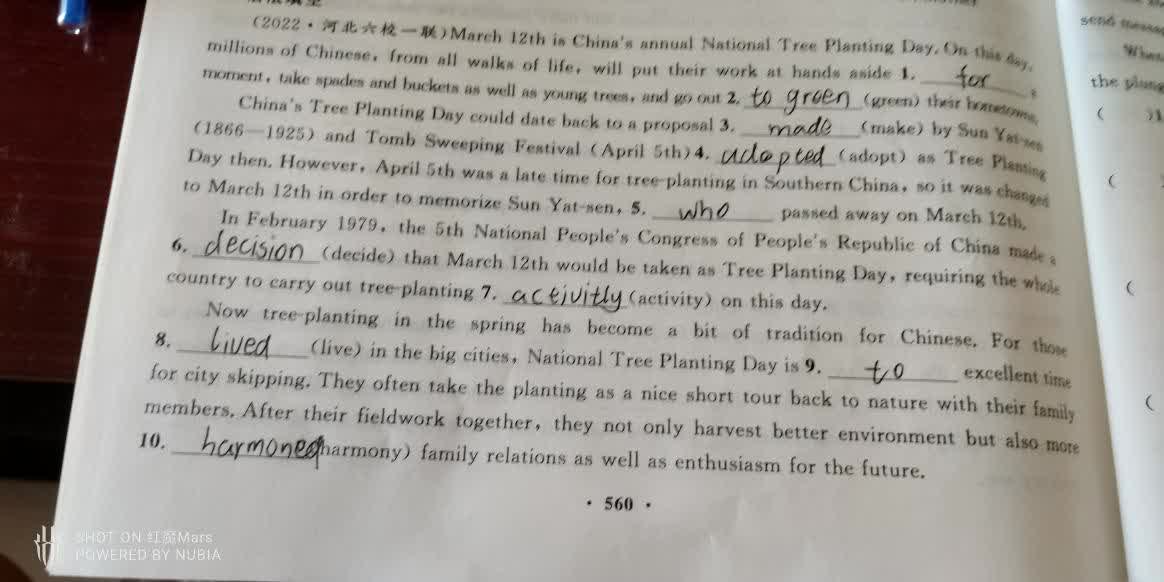 (2022·河北六校一联)March 12th is China's annual National Tree Planting Day. On this day,
millions of Chinese, from all walks of life, will put their work at hands aside 1. for a
moment, take spades and buckets as well as young trees, and go out 2. to green (green) their hometowns.
China's Tree Planting Day could date back to a proposal 3. made (make) by Sun Yat-sen
(1866—1925) and Tomb Sweeping Festival (April 5th) 4. adopted (adopt) as Tree Planting
Day then. However, April 5th was a late time for tree-planting in Southern China, so it was changed
to March 12th in order to memorize Sun Yat-sen, 5. who passed away on March 12th.
In February 1979, the 5th National People's Congress of People's Republic of China made a
6. decision (decide) that March 12th would be taken as Tree Planting Day, requiring the whole
country to carry out tree-planting 7. activitly (activity) on this day.
Now tree-planting in the spring has become a bit of tradition for Chinese. For those
8. lived (live) in the big cities, National Tree Planting Day is 9. to excellent time
for city skipping. They often take the planting as a nice short tour back to nature with their family
members. After their fieldwork together, they not only harvest better environment but also more
10. harmoned (harmony) family relations as well as enthusiasm for the future.
· 560 ·
send
When
the
(
(
(
(
SHOT ON 红魔Mars
POWERED BY NUBIA